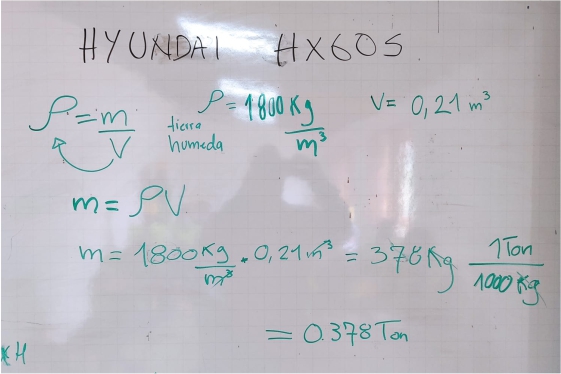 HYUNDAI HX60S
ρ = m/V tierra humeda ρ = 1800 Kg/m³ V = 0,21 m³
m = ρV
m = 1800 Kg/m³ · 0,21 m³ = 378 Kg 1 Ton/1000 Kg
= 0.378 Ton
*H